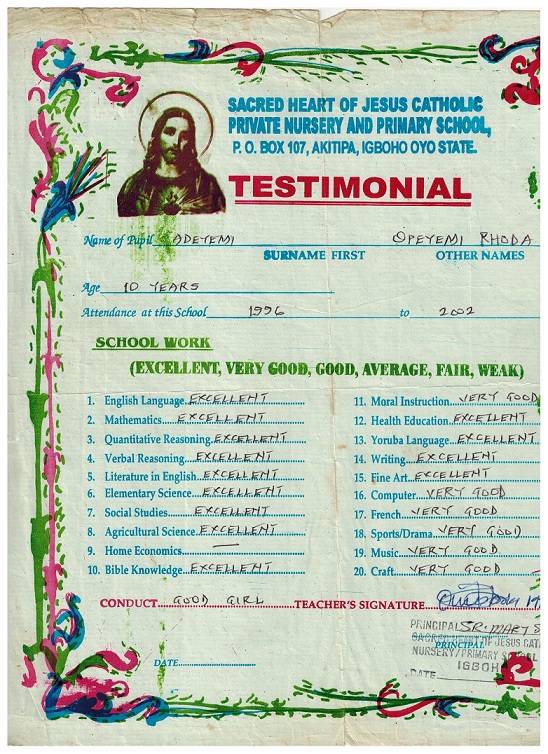 SACRED HEART OF JESUS CATHOLIC
PRIVATE NURSERY AND PRIMARY SCHOOL,
P. O. BOX 107, AKITIPA, IGBOHO OYO STATE.
TESTIMONIAL
Name of Pupil ADEYEMI OPEYEMI RHODA
SURNAME FIRST OTHER NAMES
Age 10 YEARS
Attendance at this School 1996 to 2002
SCHOOL WORK
(EXCELLENT, VERY GOOD, GOOD, AVERAGE, FAIR, WEAK)
1. English Language EXCELLENT
2. Mathematics EXCELLENT
3. Quantitative Reasoning EXCELLENT
4. Verbal Reasoning EXCELLENT
5. Literature in English EXCELLENT
6. Elementary Science EXCELLENT
7. Social Studies EXCELLENT
8. Agricultural Science EXCELLENT
9. Home Economics —
10. Bible Knowledge EXCELLENT
11. Moral Instruction VERY GOOD
12. Health Education EXCELLENT
13. Yoruba Language EXCELLENT
14. Writing EXCELLENT
15. Fine Art EXCELLENT
16. Computer VERY GOOD
17. French VERY GOOD
18. Sports/Drama VERY GOOD
19. Music VERY GOOD
20. Craft VERY GOOD
CONDUCT GOOD GIRL TEACHER'S SIGNATURE
PRINCIPAL SR. MARY S
SACRED HEART OF JESUS CAT
PRINCIPAL
NURSERY/PRIMARY
IGBOH
DATE
DATE